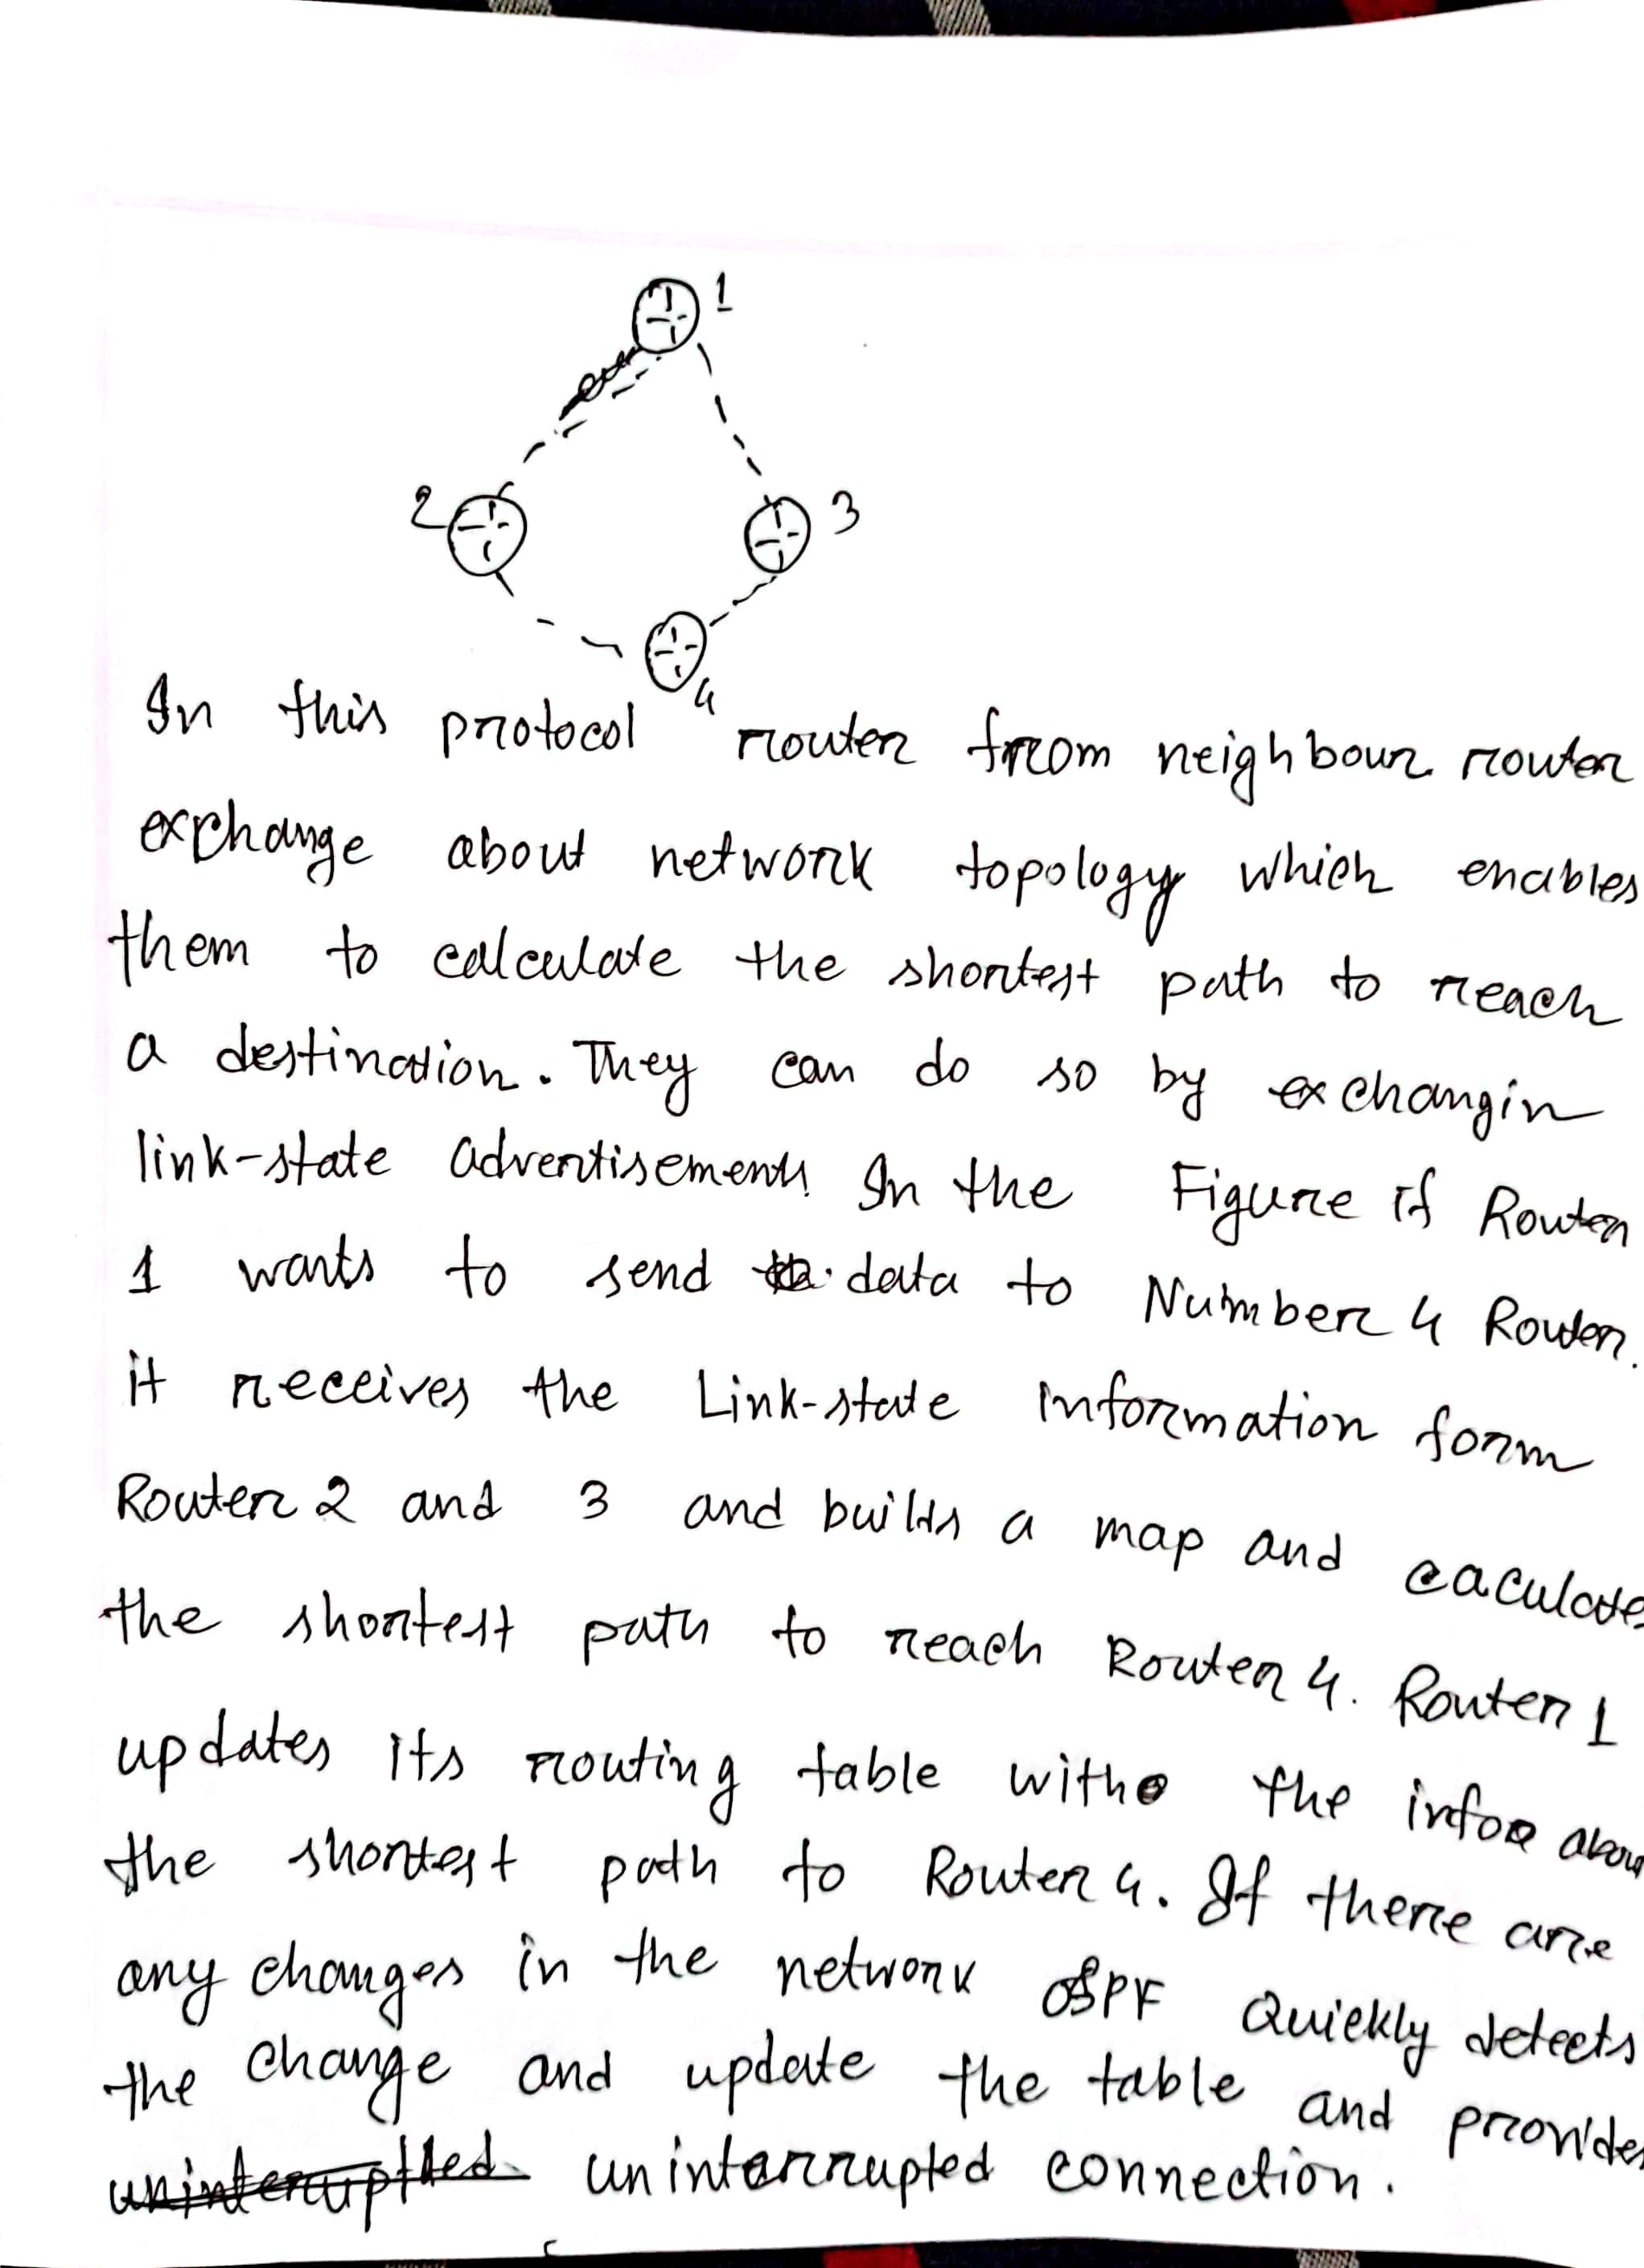 1
2
3
4
In this protocol router from neighbour router
exchange about network topology which enables
them to calculate the shortest path to reach
a destination. They can do so by exchangin
link-state advertisements. In the Figure if Router
1 wants to send data to Number 4 Router.
it receives the Link-state information form
Router 2 and 3 and builds a map and caculate
the shortest path to reach Router 4. Router 1
updates its routing table with the info abou
the shortest path to Router 4. If there are
any changes in the network OSPF Quickly detects
the change and update the table and provides
uninterrupted connection.